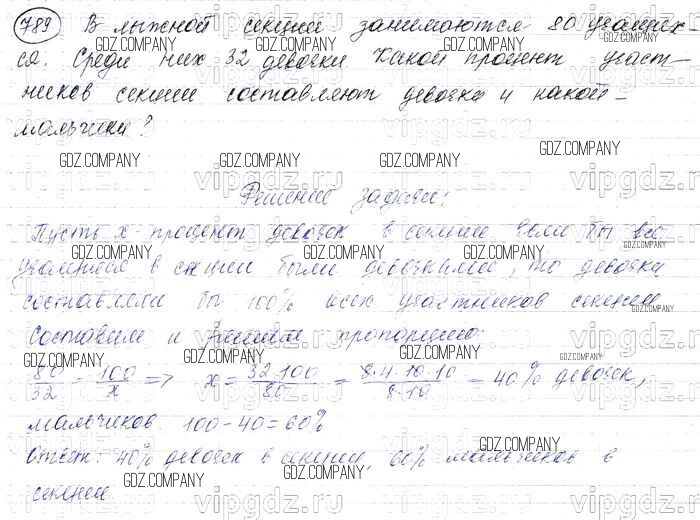 789 В лыжной секции занимаются 80 учащих-
ся. Среди них 32 девочки. Какой процент участ-
ников секции составляют девочки и какой -
мальчики?
Решение задачи:
Пусть x - процент девочек в секции. Если бы все
учащиеся в секции были девочками, то девочки
составляли бы 100% всех участников секции.
Составим и решим пропорцию:
80/32 = 100/x => x = 32·100/80 = 8·4·10·10/8·10 = 40% девочек,
мальчиков 100-40=60%
Ответ: 40% девочек в секции, 60% мальчиков в
секции.
GDZ.COMPANY
vipgdz.ru